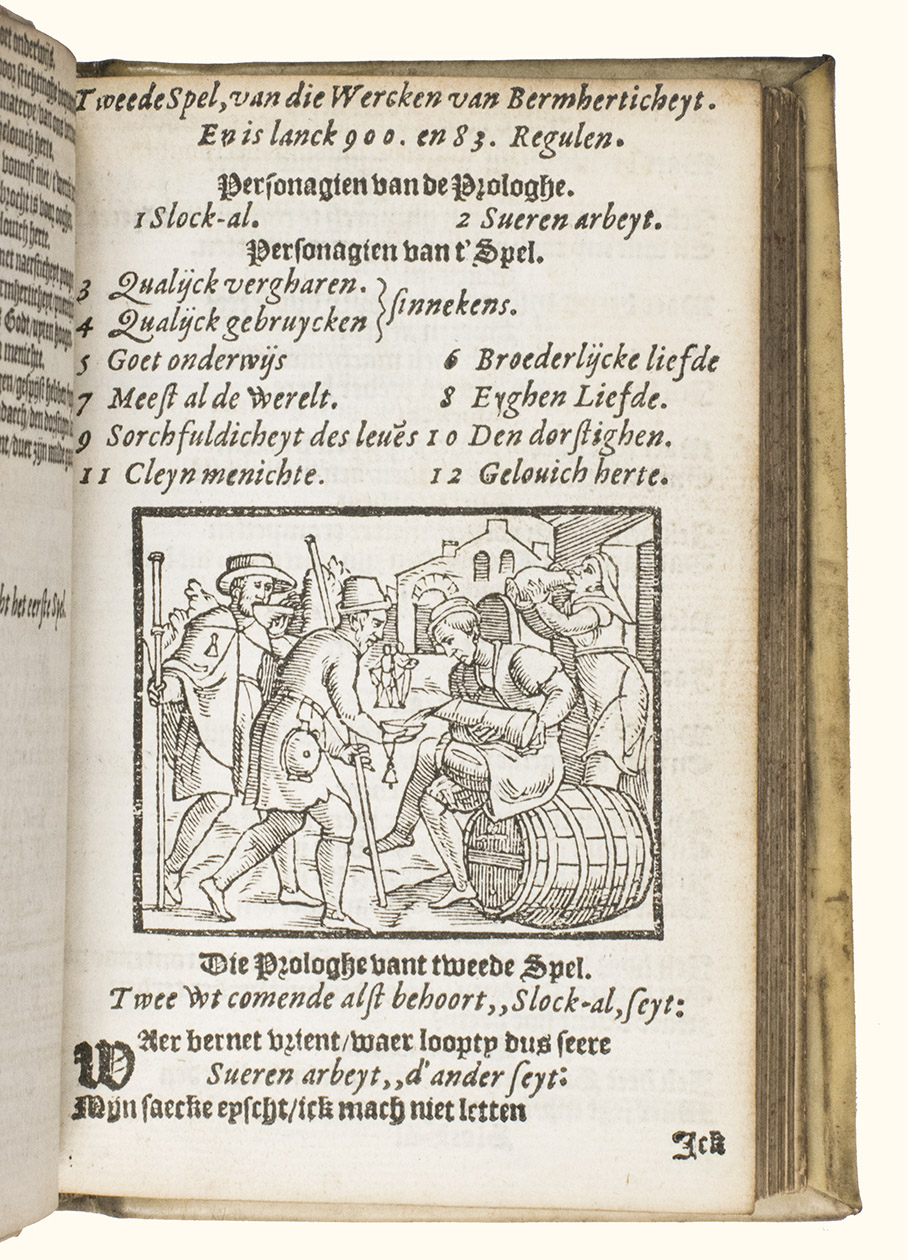 Tweede Spel, van die Wercken van Bermherticheyt.
En is lanck 900. en 83. Regulen.
Personagien van de Prologhe.
1 Slock-al. 2 Sueren arbeyt.
Personagien van t'Spel.
3 Qualijck vergharen.
4 Qualijck gebruycken } sinnekens.
5 Goet onderwijs 6 Broederlijcke liefde
7 Meest al de Werelt. 8 Eyghen Liefde.
9 Sorchfuldicheyt des leuēs 10 Den dorstighen.
11 Cleyn menichte. 12 Gelouich herte.
Die Prologhe vant tweede Spel.
Twee Wt comende alst behoort,, Slock-al, seyt:
WAer bernet vrient/waer looptp dus seere
Sueren arbeyt,, d'ander seyt:
Mijn saecke eyscht/ick mach niet letten
Ick